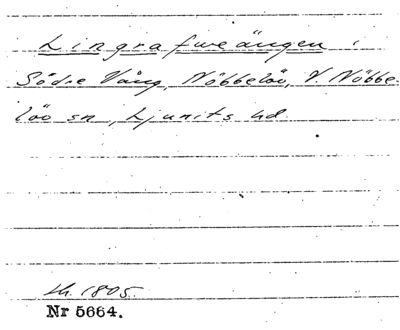 Lingrafweängen i
Södre Vång, Nöbbelöv, V. Nöbbe-
löv sn, Ljunits hd
Lh. 1805.
Nr 5664.